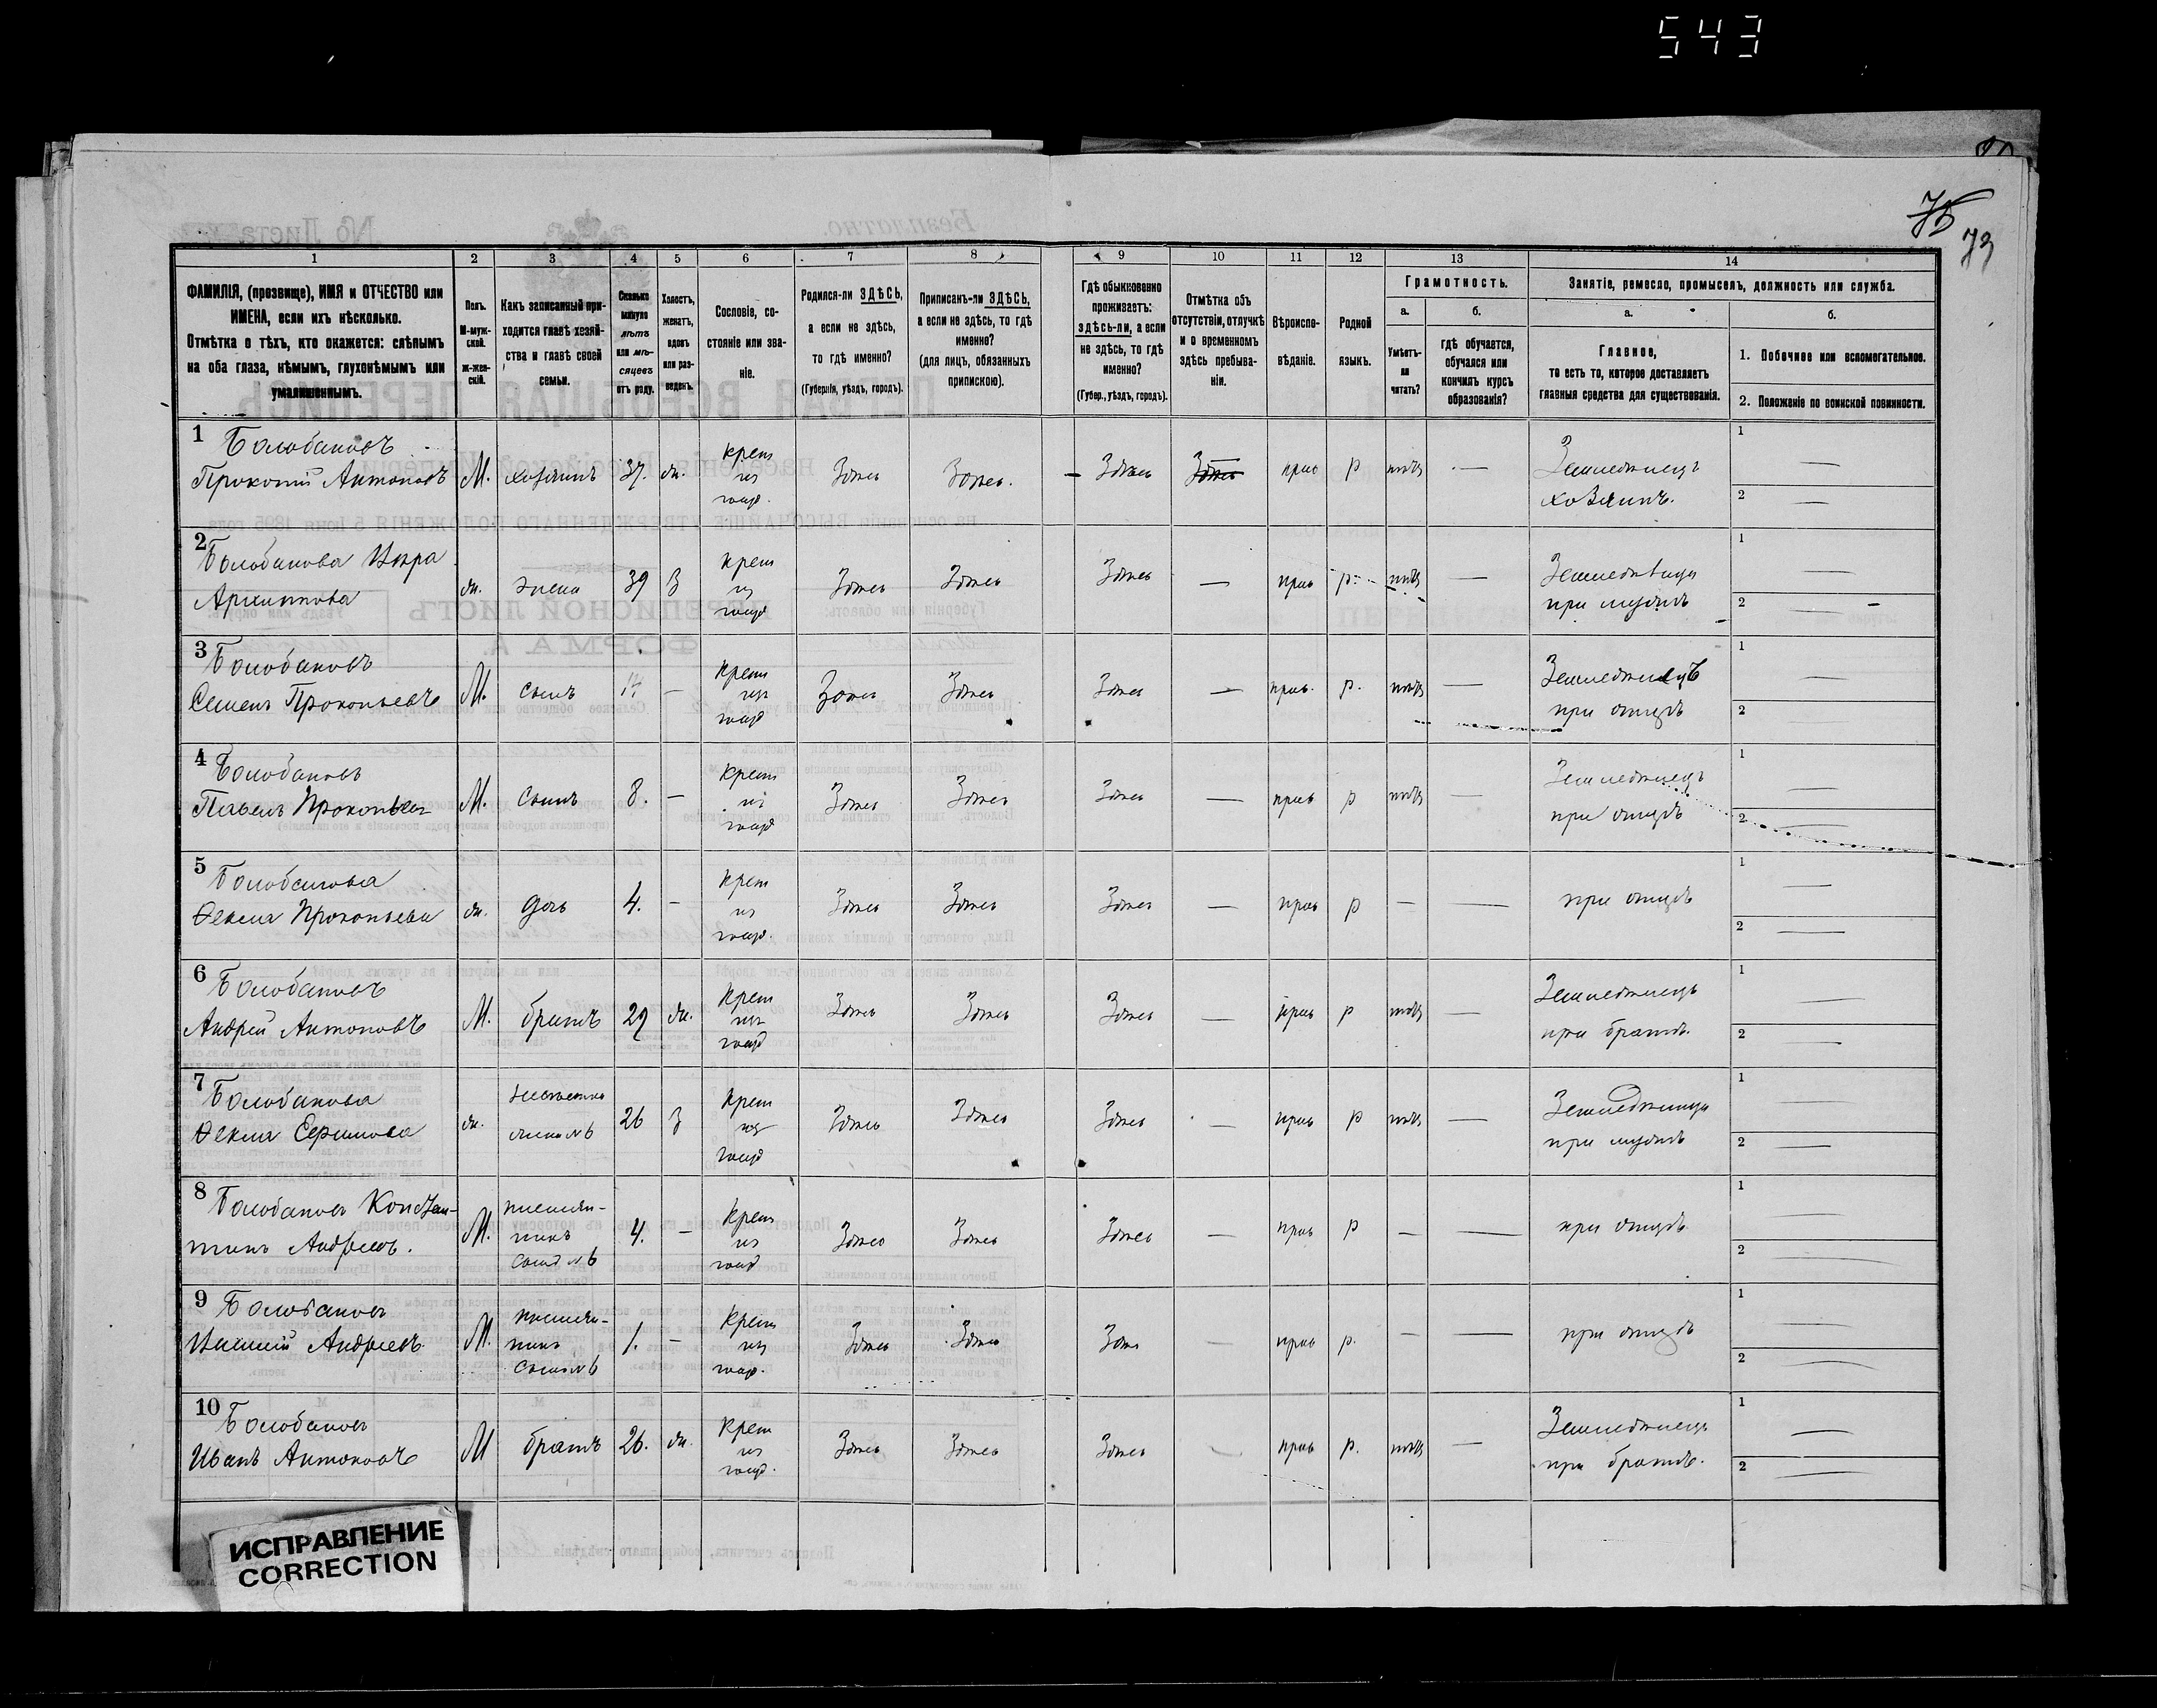 543
75
73
1 2 3 4 5 6 7 8 9 10 11 12 13 14
ФАМИЛІЯ, (прозвище), ИМЯ и ОТЧЕСТВО или
ИМЕНА, если ихъ нѣсколько.
Отмѣтка о тѣхъ, кто окажется: слѣпымъ
на оба глаза, нѣмымъ, глухонѣмымъ или
умалишеннымъ.
Полъ.
М-муж-
ской.
Ж-жен-
скій.
Какъ записанный при-
ходится главѣ хозяй-
ства и главѣ своей
семьи.
Сколько
минуло
лѣтъ
или мѣ-
сяцевъ
отъ роду.
Холостъ,
женатъ,
вдовъ
или раз-
веденъ.
Сословіе, со-
стояніе или зва-
ніе.
Родился-ли ЗДѢСЬ,
а если не здѣсь,
то гдѣ именно?
(Губернія, уѣздъ, городъ).
Приписанъ-ли ЗДѢСЬ,
а если не здѣсь, то гдѣ
именно?
(для лицъ, обязанныхъ
припискою).
Гдѣ обыкновенно
проживаетъ:
здѣсь-ли, а если
не здѣсь, то гдѣ
именно?
(Губер., уѣздъ, городъ).
Отмѣтка объ
отсутствіи, отлучкѣ
и о временномъ
здѣсь пребыва-
ніи.
Вѣроиспо-
вѣданіе.
Родной
языкъ.
Грамотность.
а.
Умѣетъ-
ли
читать?
б.
гдѣ обучается,
обучался или
кончилъ курсъ
образованія?
Занятіе, ремесло, промыселъ, должность или служба.
а.
Главное,
то есть то, которое доставляетъ
главныя средства для существованія.
б.
1. Побочное или вспомогательное.
2. Положеніе по воинской повинности.
1 Болобановъ
Прокопій Антоновъ М. хозяинъ 37. ж. крет из госуд. Здѣсь Здѣсь. Здѣсь Здѣсь прав р нѣтъ — Земледѣлецъ
хозяинъ.
1 —
2 —
2 Болобанова
ж. жена 39 З крет из госуд Здѣсь Здѣсь Здѣсь — прав р. нѣтъ —
при мужѣ
1 —
2 —
3 Болобановъ
Семенъ Прокопьевъ М. сынъ — крет из госуд Здѣсь Здѣсь Здѣсь — прав. р. нѣтъ — Земледѣлецъ
при отцѣ
1 —
2 —
4 Болобановъ
Павелъ М. сынъ 8. — крет из госуд Здѣсь Здѣсь Здѣсь — прав р нѣтъ — Земледѣлецъ
при отцѣ
1 —
2 —
5 Болобанова
Ѳекла Прокопьева ж. дочь 4. — крет из госуд. Здѣсь Здѣсь Здѣсь — прав р — — при отцѣ
1 —
2 —
6 Болобановъ
Андрей Антоновъ М. братъ 29 ж. крет из госуд Здѣсь Здѣсь Здѣсь — прав р нѣтъ — Земледѣлецъ
при братѣ.
1 —
2 —
7 Болобанова
Ѳекла ж. 26 З крет из госуд Здѣсь Здѣсь Здѣсь — прав р нѣтъ —
при мужѣ
1 —
2 —
8 Болобановъ Констан-
тинъ Андреевъ. М. племян-
никъ
сынъ №6 4. — крет из госуд Здѣсь Здѣсь Здѣсь — прав р — — при отцѣ
1 —
2 —
9 Болобановъ
Андреевъ М. племян-
никъ
сынъ №6 1. — крет из госуд. Здѣсь Здѣсь Здѣсь — прав р. — — при отцѣ
1 —
2 —
10 Болобановъ
Иванъ Антоновъ М братъ 26. ж. крет из госуд. Здѣсь Здѣсь Здѣсь — прав р. нѣтъ — Земледѣлецъ
при братѣ.
1 —
2 —
ИСПРАВЛЕНИЕ
CORRECTION